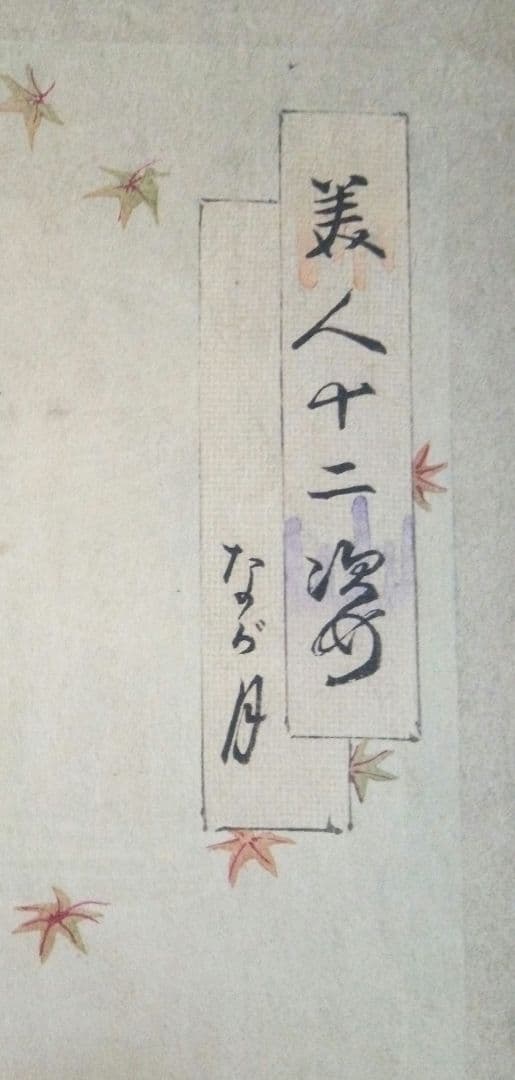 美人十二姿
なが月